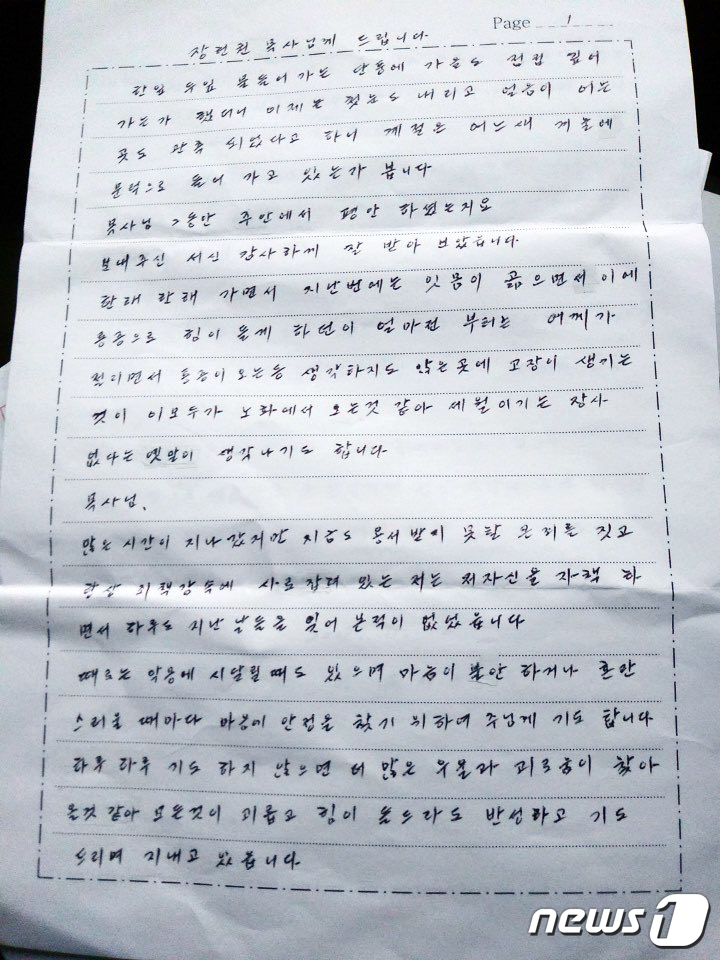 Page 1
장현권 목사님께 드립니다.
한잎 두잎 물들어 가는 단풍에 가을도 점점 깊어
가는가 했더니 이제는 첫눈도 내리고 얼음이 어는
곳도 관측 되었다고 하니 계절은 어느새 겨울에
문턱으로 들어 가고 있는가 봅니다
목사님 그동안 주안에서 평안 하셨는지요
보내주신 서신 감사하게 잘 받아 보았습니다.
한해 한해 가면서 지난번에는 잇몸이 곪으면서 이에
통증으로 힘이 들게 하던이 얼마전 부터는 어께가
결리면서 통증이 오는등 생각하지도 않은곳에 고장이 생기는
것이 이모두가 노화에서 오는것 같아 세월이기는 장사
없다는 옛말이 생각나기도 합니다.
목사님.
많은 시간이 지나갔지만 지금도 용서받지 못할 큰 죄를 짓고
항상 죄책감속에 사로잡혀 있는 저는 저자신을 자책 하
면서 하루도 지난 날들을 잊어 본적이 없었읍니다
때로는 악몽에 시달릴때도 있으며 마음이 불안 하거나 혼란
스러울 때마다 마음에 안정을 찾기 위하여 주님께 기도 합니다
하루 하루 기도 하지 않으면 더 많은 우울과 괴로움이 찾아
올것 같아 모든것이 괴롭고 힘이 들드라도 반성하고 기도
드리며 지내고 있읍니다.
news1